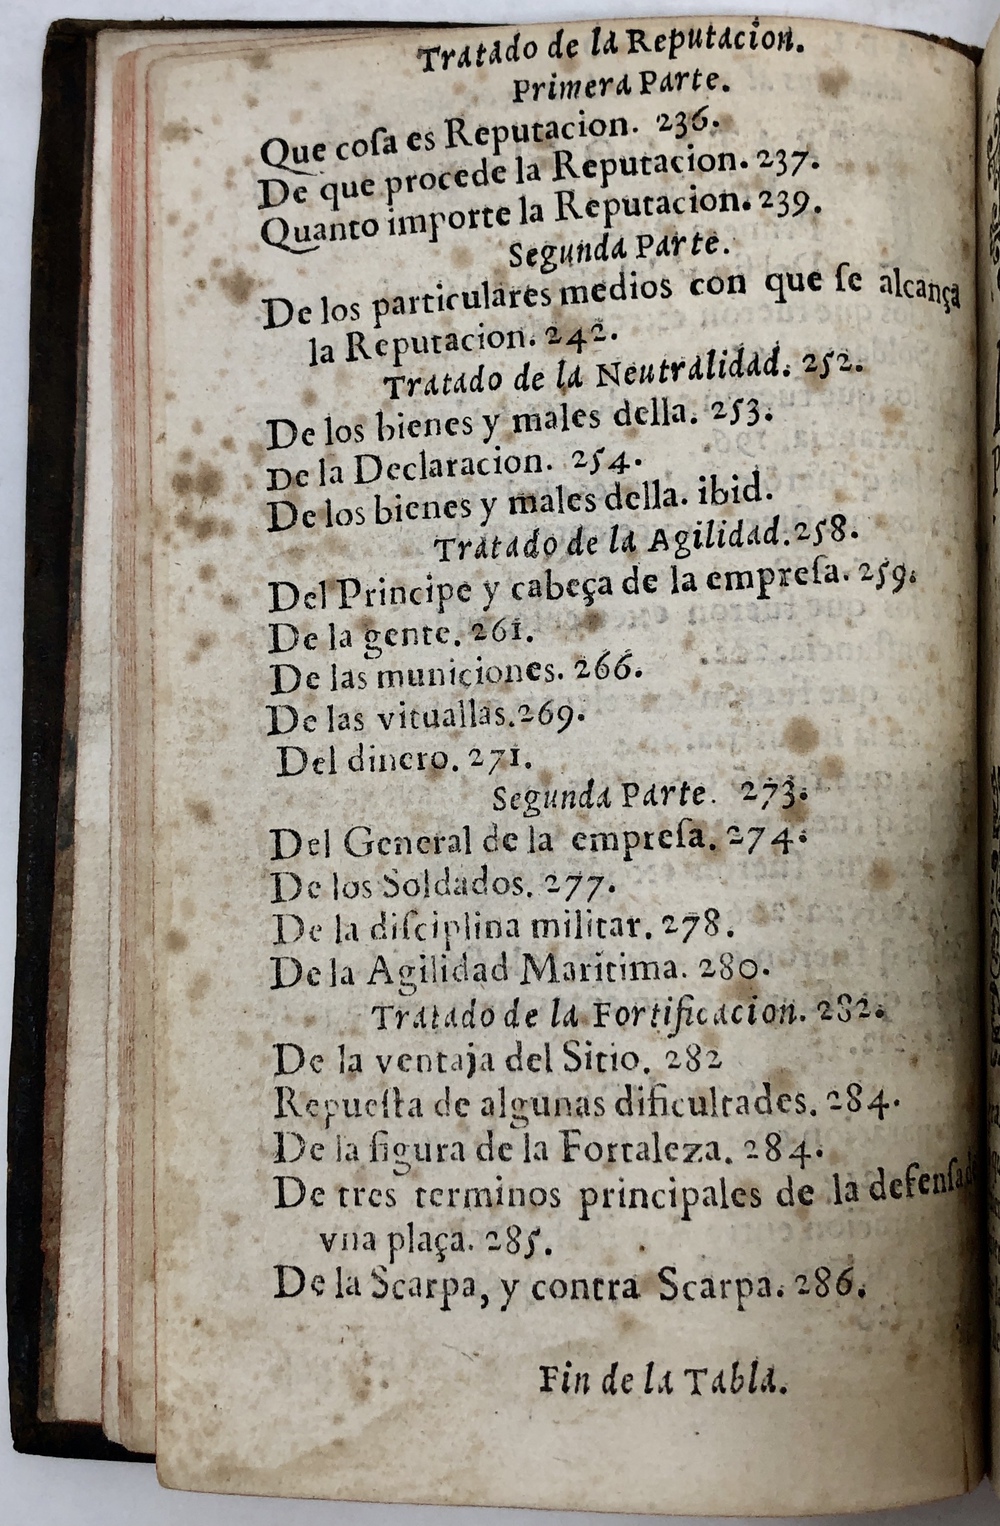 Tratado de la Reputacion.
Primera Parte.
Que coſa es Reputacion. 236.
De que procede la Reputacion. 237.
Quanto importe la Reputacion. 239.
Segunda Parte.
De los particulares medios con que ſe alcança
la Reputacion. 242.
Tratado de la Neutralidad. 252.
De los bienes y males della. 253.
De la Declaracion. 254.
De los bienes y males della. ibid.
Tratado de la Agilidad. 258.
Del Principe y cabeça de la empreſa. 259.
De la gente. 261.
De las municiones. 266.
De las vituallas. 269.
Del dinero. 271.
Segunda Parte. 273.
Del General de la empreſa. 274.
De los Soldados. 277.
De la diſciplina militar. 278.
De la Agilidad Maritima. 280.
Tratado de la Fortificacion. 282.
De la ventaja del Sitio. 282
Repueſta de algunas dificultades. 284.
De la figura de la Fortaleza. 284.
De tres terminos principales de la defenſa de
vna plaça. 285.
De la Scarpa, y contra Scarpa. 286.
Fin de la Tabla.